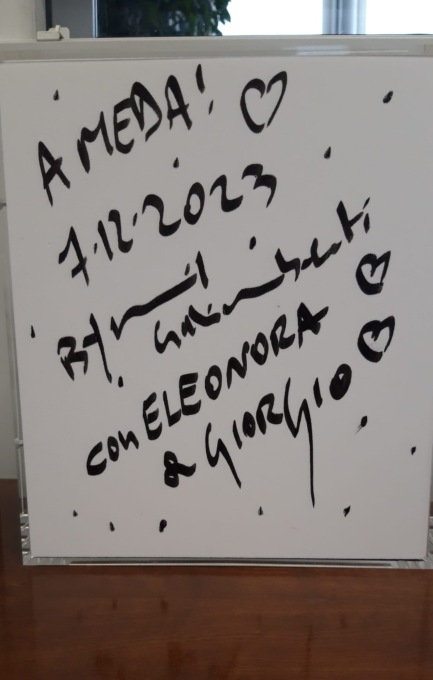 A MEDA!
7.12.2023
con ELEONORA
& GIORGIO